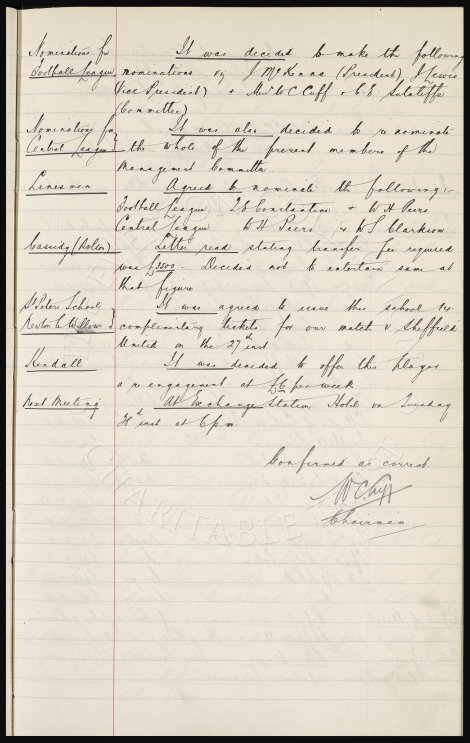 Nominations for It was decided to make the following
Football League nominations viz J McKenna (President) J Lewis
(Vice President) & Mr W C Cuff & C E Sutcliffe
(Committee)
Nominations for It was also decided to re nominate
Central League the whole of the present members of the
Management Committee
Linesmen Agreed to nominate the following:-
Football League J E Constantine & W H Peers
Central League W H Peers & W S Clarkson
Cassidy (Bolton) Letter read stating transfer fee required
was £3500. Decided not to entertain same at
that figure
St Peters School It was agreed to issue this school 14
Newton le Willows complimentary tickets for our match v Sheffield
United on the 27th inst
Kendall It was decided to offer this player
a re engagement at £6 per week
Next Meeting At Exchange Station Hotel on Tuesday
inst at 6 pm
Confirmed as correct
W C Cuff
Chairman
CHARITABLE